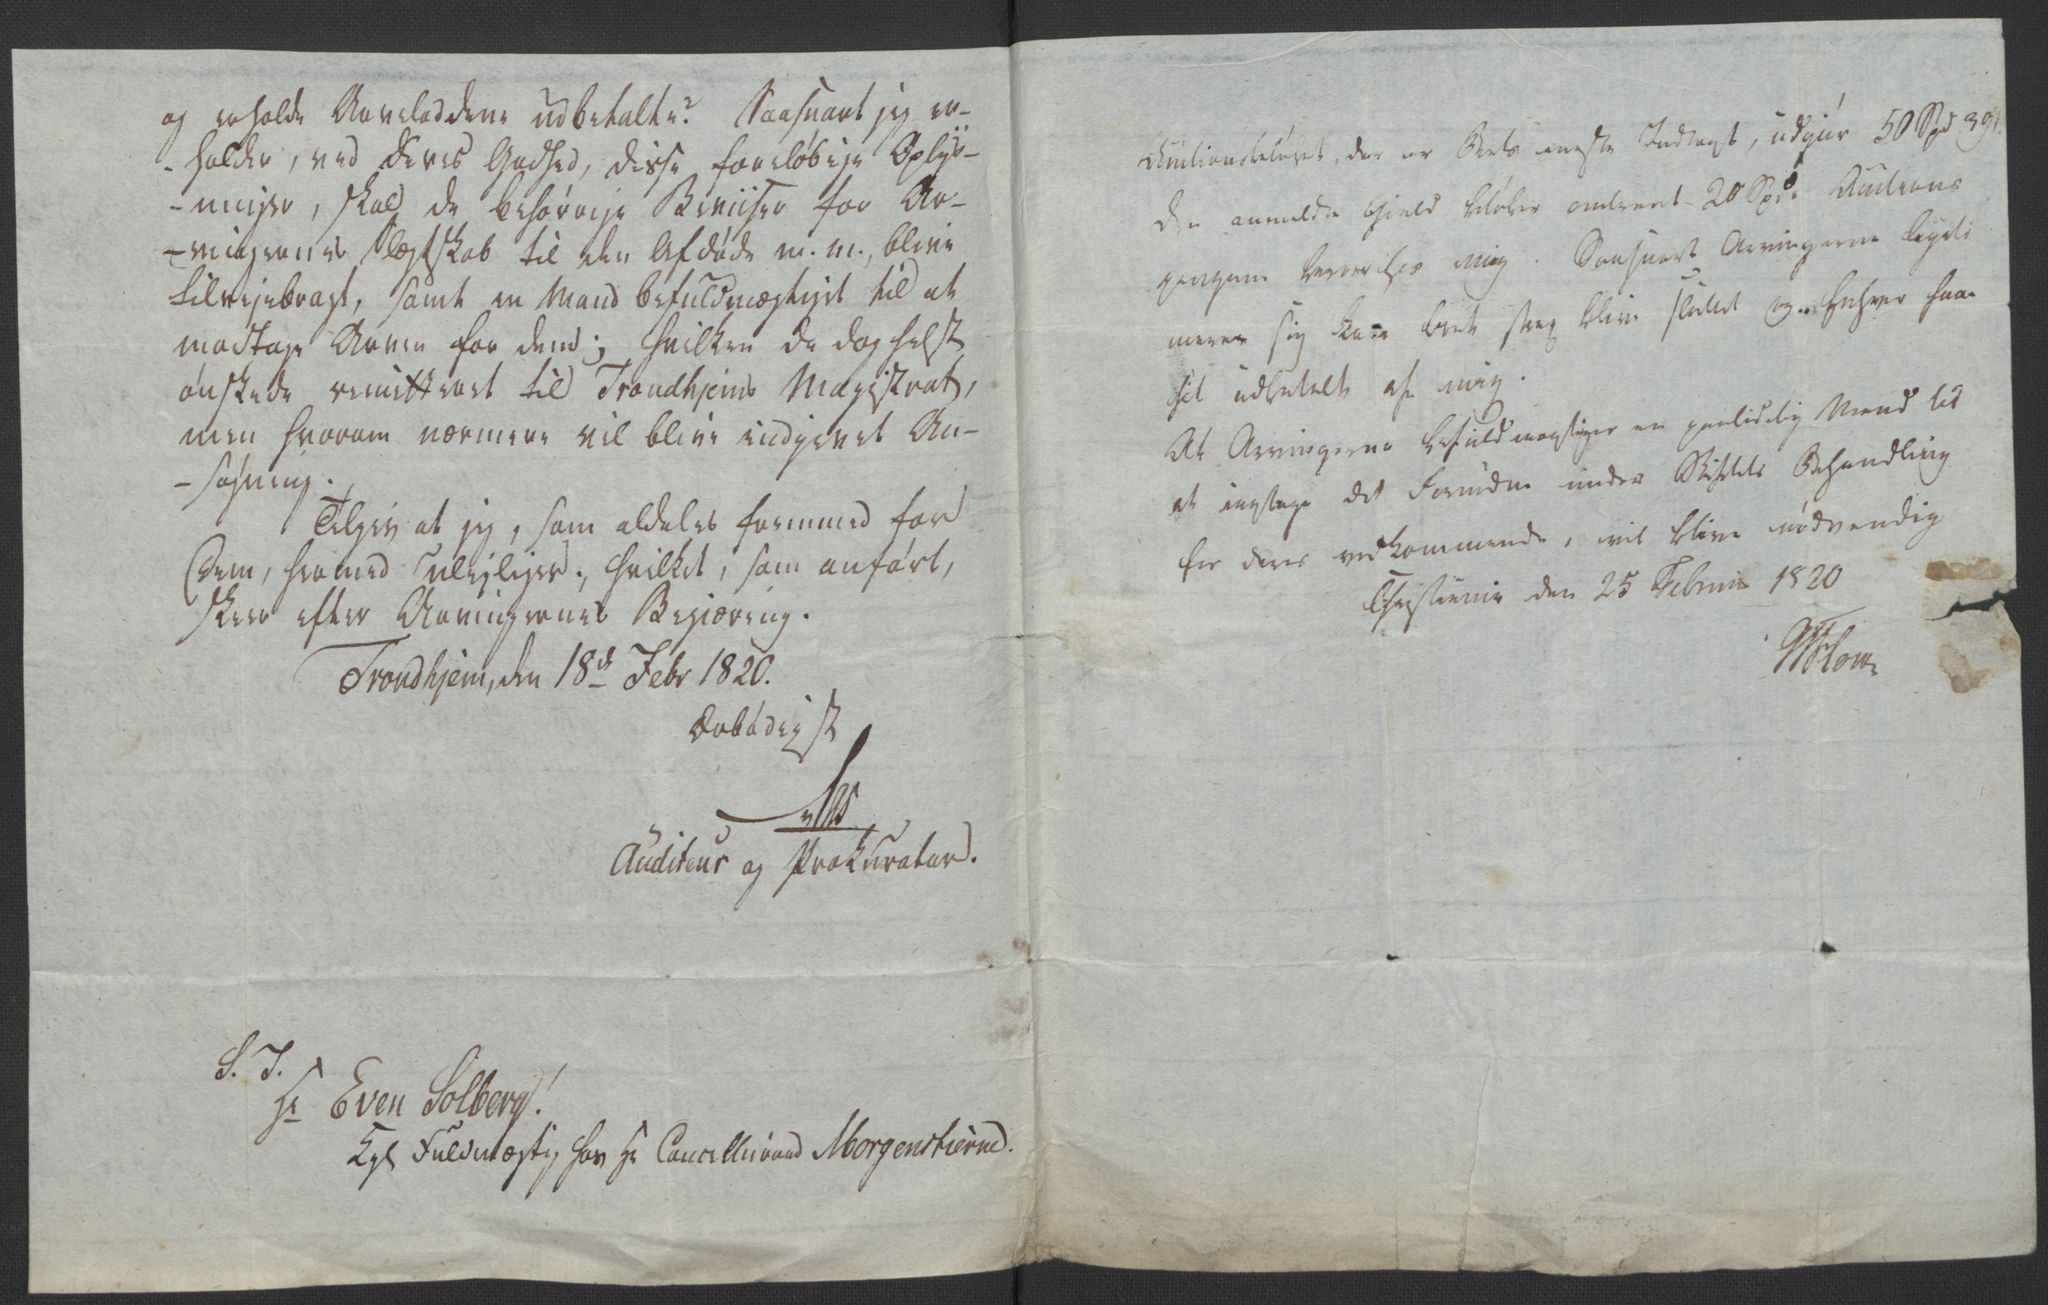 og erholde Arvelodderne udbetalte? Saasnart jeg er-
-holder, ved Deres Godhed, disse foreløbige Oplys-
-ninger, skal de behørige Beviiser for Ar-
-vingernes Slægtskab til den Afdøde m.m., blive
tilvejebragt, samt en Mand befuldmægtiget til at
modtage Arven for dem; hvilken de dog helst
ønskede remitteret til Trondhjems Magistrat,
men hvorom nærmere vil blive indgivet An-
-søgning.
Tilgiv at jeg, som aldeles fremmed for
Dem, hermed uleiliger; hvilket, som anført,
skeer efter Arvingernes Begjæring.
Trondhjem, den 18d Febr 1820.
Ærbødigst
Auditeur og Prokurator.
S. T.
Hr Even Solberg!
Kgl Fuldmægtig hos Hr Cancelliraad Morgenstierne.
Auctionsbeløbet, der er Boets eneste Indtægt, udgiør 50 Spd 39
Den anmeldte Gield beløber omtrent 20 Spd. Auctions
pengene beroer hos mig. Saasnart Arvingerne legiti
merer sig kan Boet strax blive sluttet og Enhver faae
sit udbetalt af mig.
At Arvingerne befuldmægtiger en paalidelig Mand til
at iagttage det Fornødne under Skiftets Behandling
for deres vedkommende, vil blive nødvendig
Christiania den 25 Februar 1820